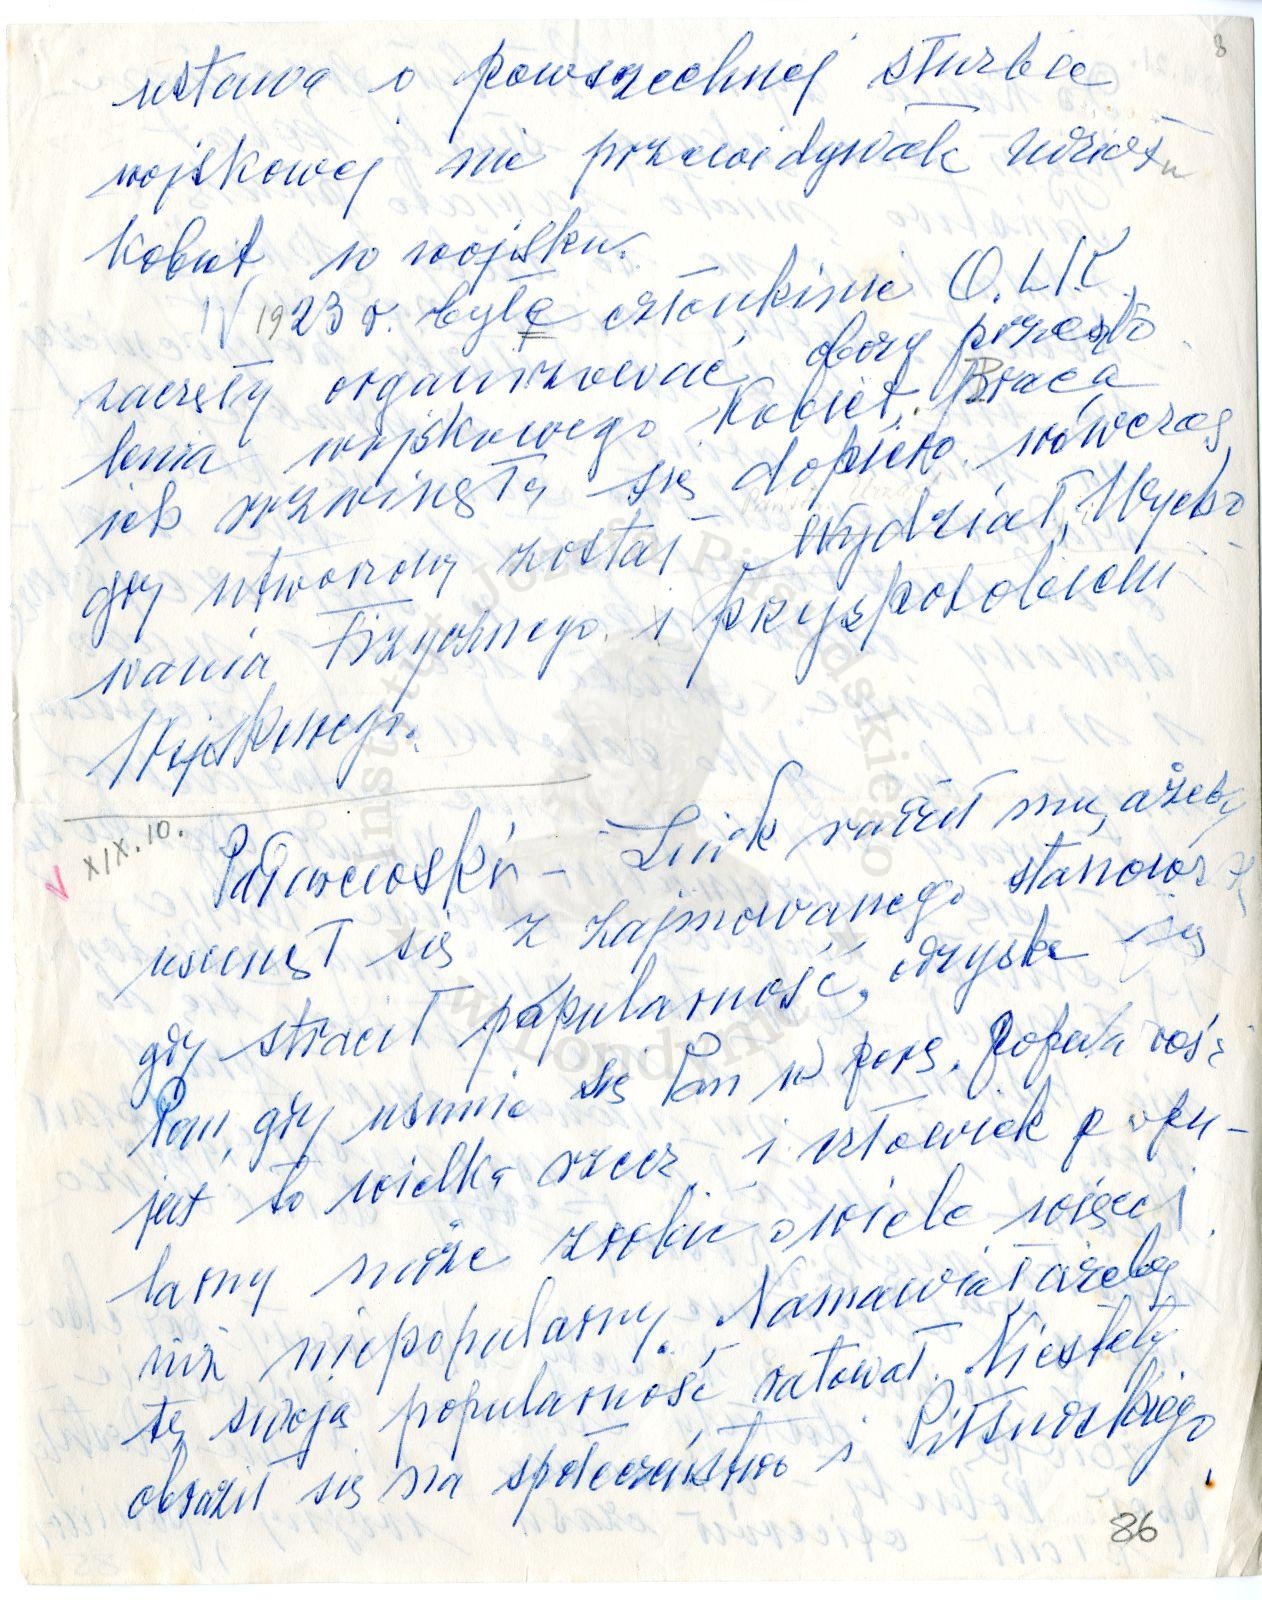 8
ustawa o powszechnej służbie
wojskowej nie przewidywała udziału
kobiet w wojsku.
W 1923 r. były członkinie O.L.K.
zaczęły organizować obozy przeszko
lenia wojskowego kobiet. Praca
ich rozwinęła się dopiero wówczas,
gdy utworzony został Wydział, Wycho
wania Fizycznego i Przysposobienia
Wojskowego.
XIX.10.
Paderewski – radził mu, ażeby
usunął się z zajmowanego stanowiska
gdy stracił popularność, odzyska ją
Pan, gdy usunie się Pan w porę. Popularność
jest to wielka rzecz i człowiek popu-
larny może zrobić o wiele więcej
niż niepopularny. Namawiał ażeby
tę swoją popularność ratował. Niestety
obraził się na społeczeństwo i Piłsudskiego,
86
Instytut Józefa Piłsudskiego
w Londynie